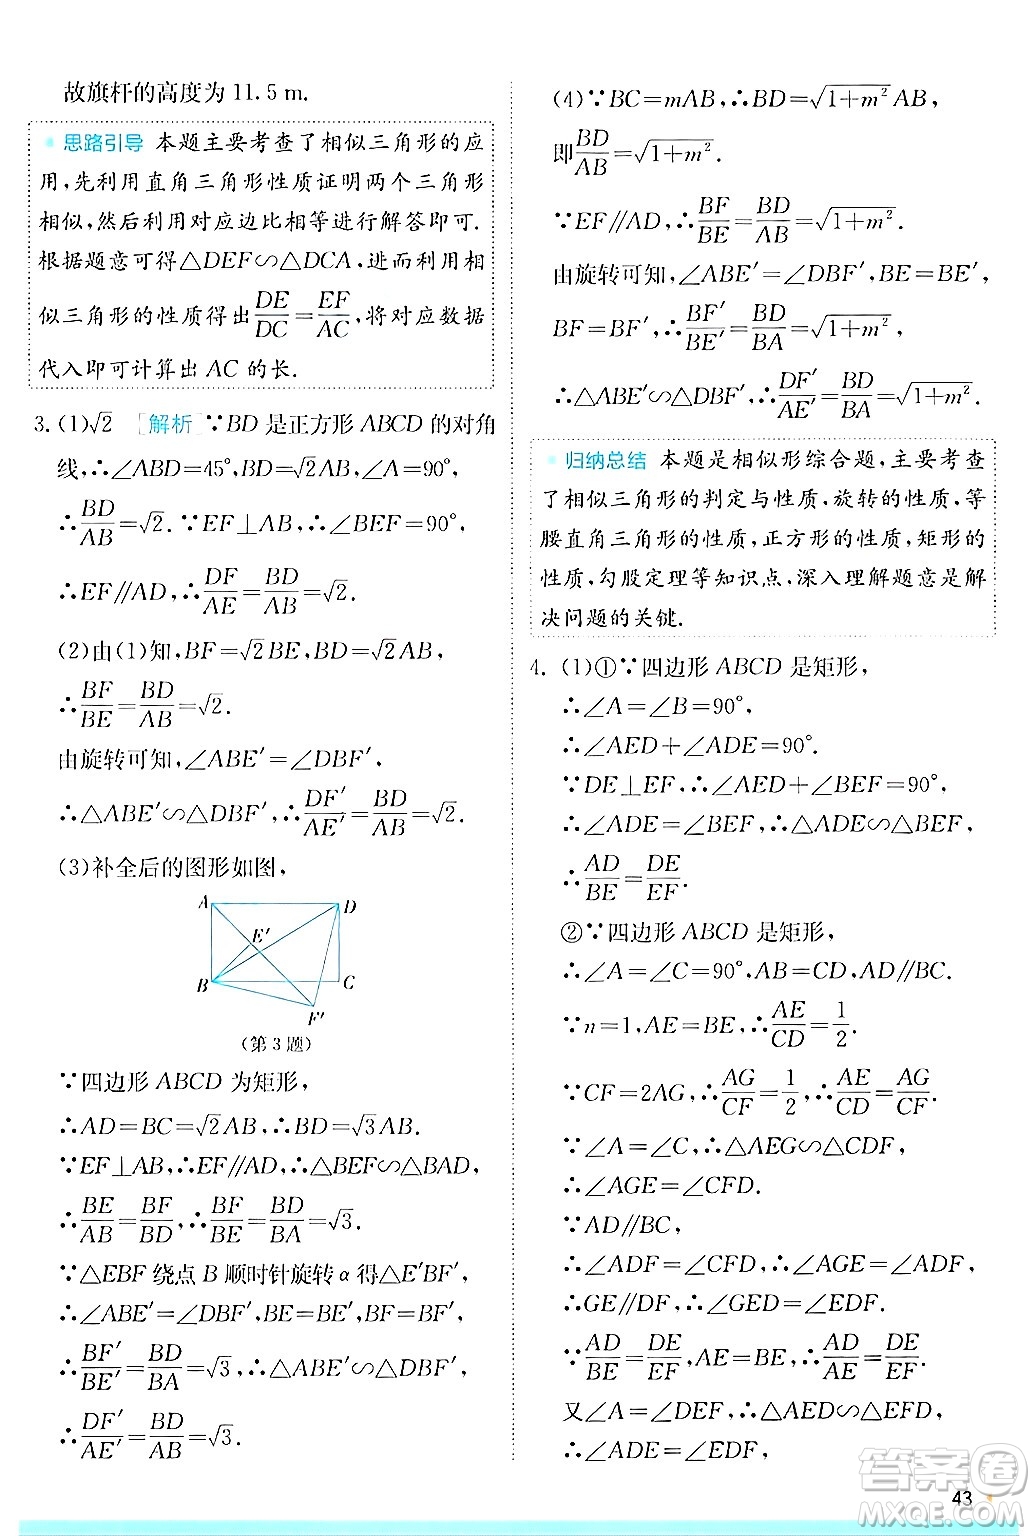 故旗杆的高度为 11.5 m.
思路引导 本题主要考查了相似三角形的应
用,先利用直角三角形性质证明两个三角形
相似,然后利用对应边比相等进行解答即可.
根据题意可得△DEF∽△DCA,进而利用相
似三角形的性质得出DE/DC=EF/AC,将对应数据
代入即可计算出 AC 的长.
3. (1)√2 [解析]∵BD 是正方形 ABCD 的对角
线,∴∠ABD=45°,BD=√2AB,∠A=90°,
∴BD/AB=√2.∵EF⊥AB,∴∠BEF=90°,
∴EF∥AD,∴DF/AE=BD/AB=√2.
(2)由(1)知,BF=√2BE,BD=√2AB,
∴BF/BE=BD/AB=√2.
由旋转可知,∠ABE′=∠DBF′,
∴△ABE′∽△DBF′,∴DF′/AE′=BD/AB=√2.
(3)补全后的图形如图,
A
D
E′
B
C
F′
(第 3 题)
∵四边形 ABCD 为矩形,
∴AD=BC=√2AB,∴BD=√3AB.
∵EF⊥AB,∴EF∥AD,∴△BEF∽△BAD,
∴BE/AB=BF/BD,∴BF/BE=BD/BA=√3.
∵△EBF 绕点 B 顺时针旋转 α 得△E′BF′,
∴∠ABE′=∠DBF′,BE=BE′,BF=BF′,
∴BF′/BE′=BD/BA=√3,∴△ABE′∽△DBF′,
∴DF′/AE′=BD/AB=√3.
(4)∵BC=mAB,∴BD=√(1+m²)AB,
即BD/AB=√(1+m²).
∵EF∥AD,∴BF/BE=BD/BA=√(1+m²).
由旋转可知,∠ABE′=∠DBF′,BE=BE′,
BF=BF′,∴BF′/BE′=BD/BA=√(1+m²),
∴△ABE′∽△DBF′,∴DF′/AE′=BD/BA=√(1+m²).
归纳总结 本题是相似形综合题,主要考查
了相似三角形的判定与性质,旋转的性质,等
腰直角三角形的性质,正方形的性质,矩形的
性质,勾股定理等知识点,深入理解题意是解
决问题的关键.
4. (1)①∵四边形 ABCD 是矩形,
∴∠A=∠B=90°,
∴∠AED+∠ADE=90°.
∵DE⊥EF,∴∠AED+∠BEF=90°,
∴∠ADE=∠BEF,∴△ADE∽△BEF,
∴AD/BE=DE/EF.
②∵四边形 ABCD 是矩形,
∴∠A=∠C=90°,AB=CD,AD∥BC.
∵n=1,AE=BE,∴AE/CD=1/2.
∵CF=2AG,∴AG/CF=1/2,∴AE/CD=AG/CF.
∵∠A=∠C,∴△AEG∽△CDF,
∴∠AGE=∠CFD.
∵AD∥BC,
∴∠ADF=∠CFD,∴∠AGE=∠ADF,
∴GE∥DF,∴∠GED=∠EDF.
∵AD/BE=DE/EF,AE=BE,∴AD/AE=DE/EF.
又∠A=∠DEF,∴△AED∽△EFD,
∴∠ADE=∠EDF,∴∠ADE=∠GED,
43
答案圈
MXQE.COM